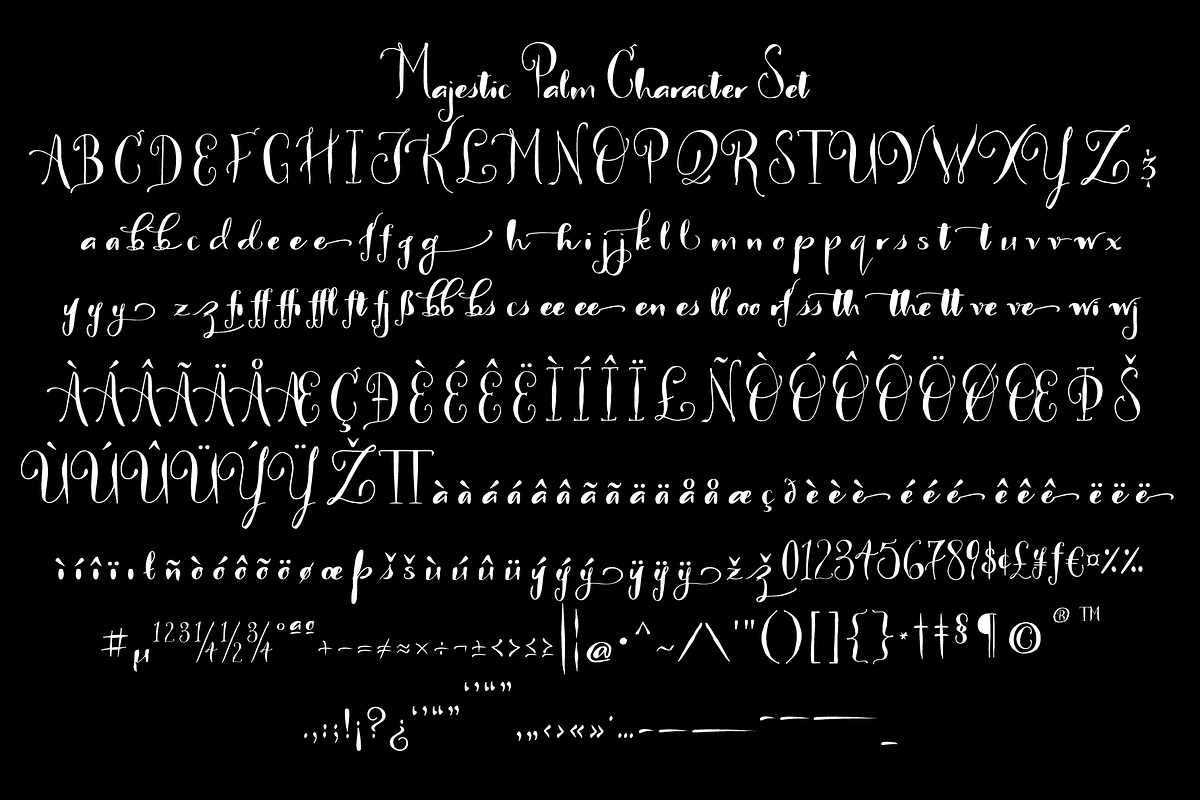 Majestic Palm Character Set
ABCDEFGHIJKLMNOPQRSTUVWXYZ
aabbcddeeeffggghhijjkllmnoppqrssttuvvwx
yyyzzfiffffifflftfjßbbbscseeeeenesllooofssththetttvevewiwj
ÀÁÂÃÄÅÆÇÐÈÉÊËÌÍÎÏŁÑÒÓÔÕÖØŒÞŠ
ÙÚÛÜÝŸŽΠààááââããääååæçðèèèéééêêêëëë
ìíîïıłñòóôõöøœþššùúûüýýýÿÿÿžž0123456789$¢£¥ƒ€¤٪٪
#µ123¼½¾ºªº+−=≠≈×÷¬±<>≤≥|¦@•^~/\'"()[]{}*†‡§¶©®™
‘’“”
.,:;!¡?¿‘’“”‚„‹›«»·…-–—-–—_